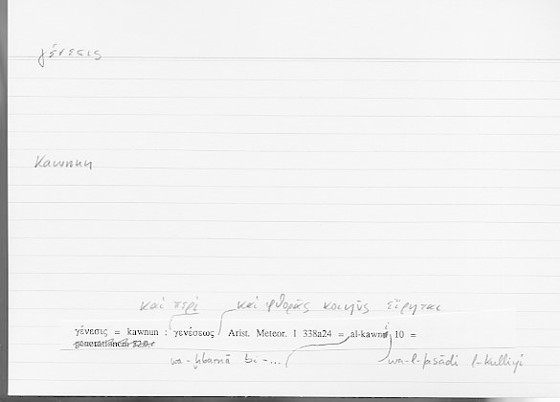 γένεσις
Kawnun
καὶ περὶ καὶ φθορᾶς κοινῆς εἴρηται
γένεσις = kawnun : γενέσεως Arist. Meteor. I 338a24 = al-kawni 10 =
wa-ḫbarnā bi-... wa-l-fasādi l-kulliyi